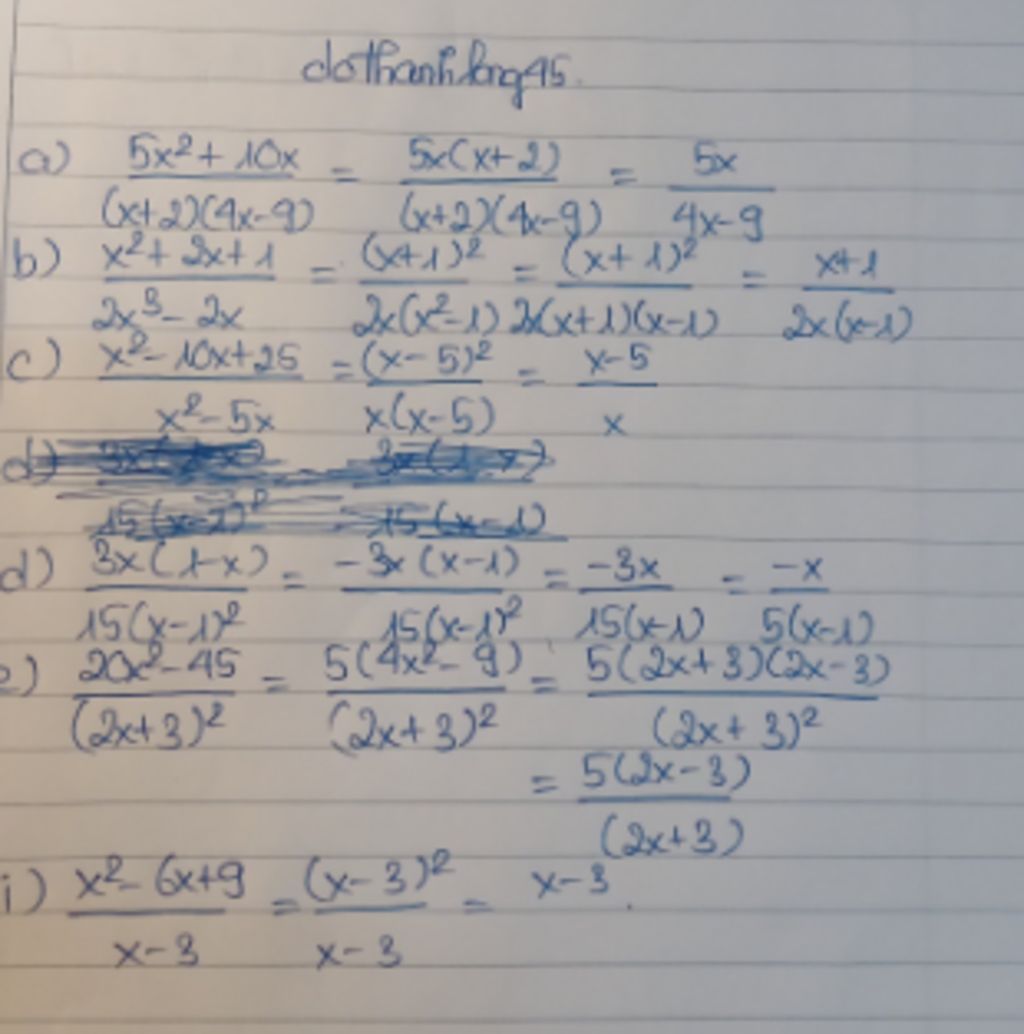 dothanhlong45.
a) \frac{5x^2+10x}{(x+2)(4x-9)} = \frac{5x(x+2)}{(x+2)(4x-9)} = \frac{5x}{4x-9}
b) \frac{x^2+2x+1}{2x^3-2x} = \frac{(x+1)^2}{2x(x^2-1)} = \frac{(x+1)^2}{2x(x+1)(x-1)} = \frac{x+1}{2x(x-1)}
c) \frac{x^2-10x+25}{x^2-5x} = \frac{(x-5)^2}{x(x-5)} = \frac{x-5}{x}
d) \frac{3x(1-x)}{15(x-1)^2} = \frac{-3x(x-1)}{15(x-1)^2} = \frac{-3x}{15(x-1)} = \frac{-x}{5(x-1)}
e) \frac{20x^2-45}{(2x+3)^2} = \frac{5(4x^2-9)}{(2x+3)^2} = \frac{5(2x+3)(2x-3)}{(2x+3)^2}
= \frac{5(2x-3)}{(2x+3)}
i) \frac{x^2-6x+9}{x-3} = \frac{(x-3)^2}{x-3} = x-3.